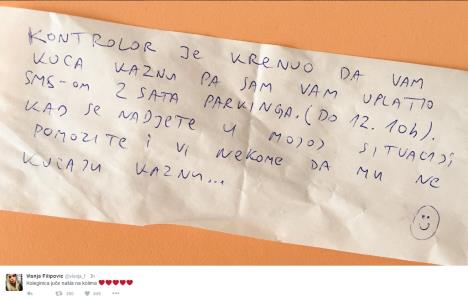 KONTROLOR JE KRENUO DA VAM
KUCA KAZNU PA SAM VAM UPLATIO
SMS-OM 2 SATA PARKINGA. (DO 12.10h).
KAD SE NADJETE U MOJOJ SITUACIJI
POMOZITE I VI NEKOME DA MU NE
KUCAJU KAZNU...
Visnja Filipovic @visnja_f · 3h
Koleginica juče našla na kolima